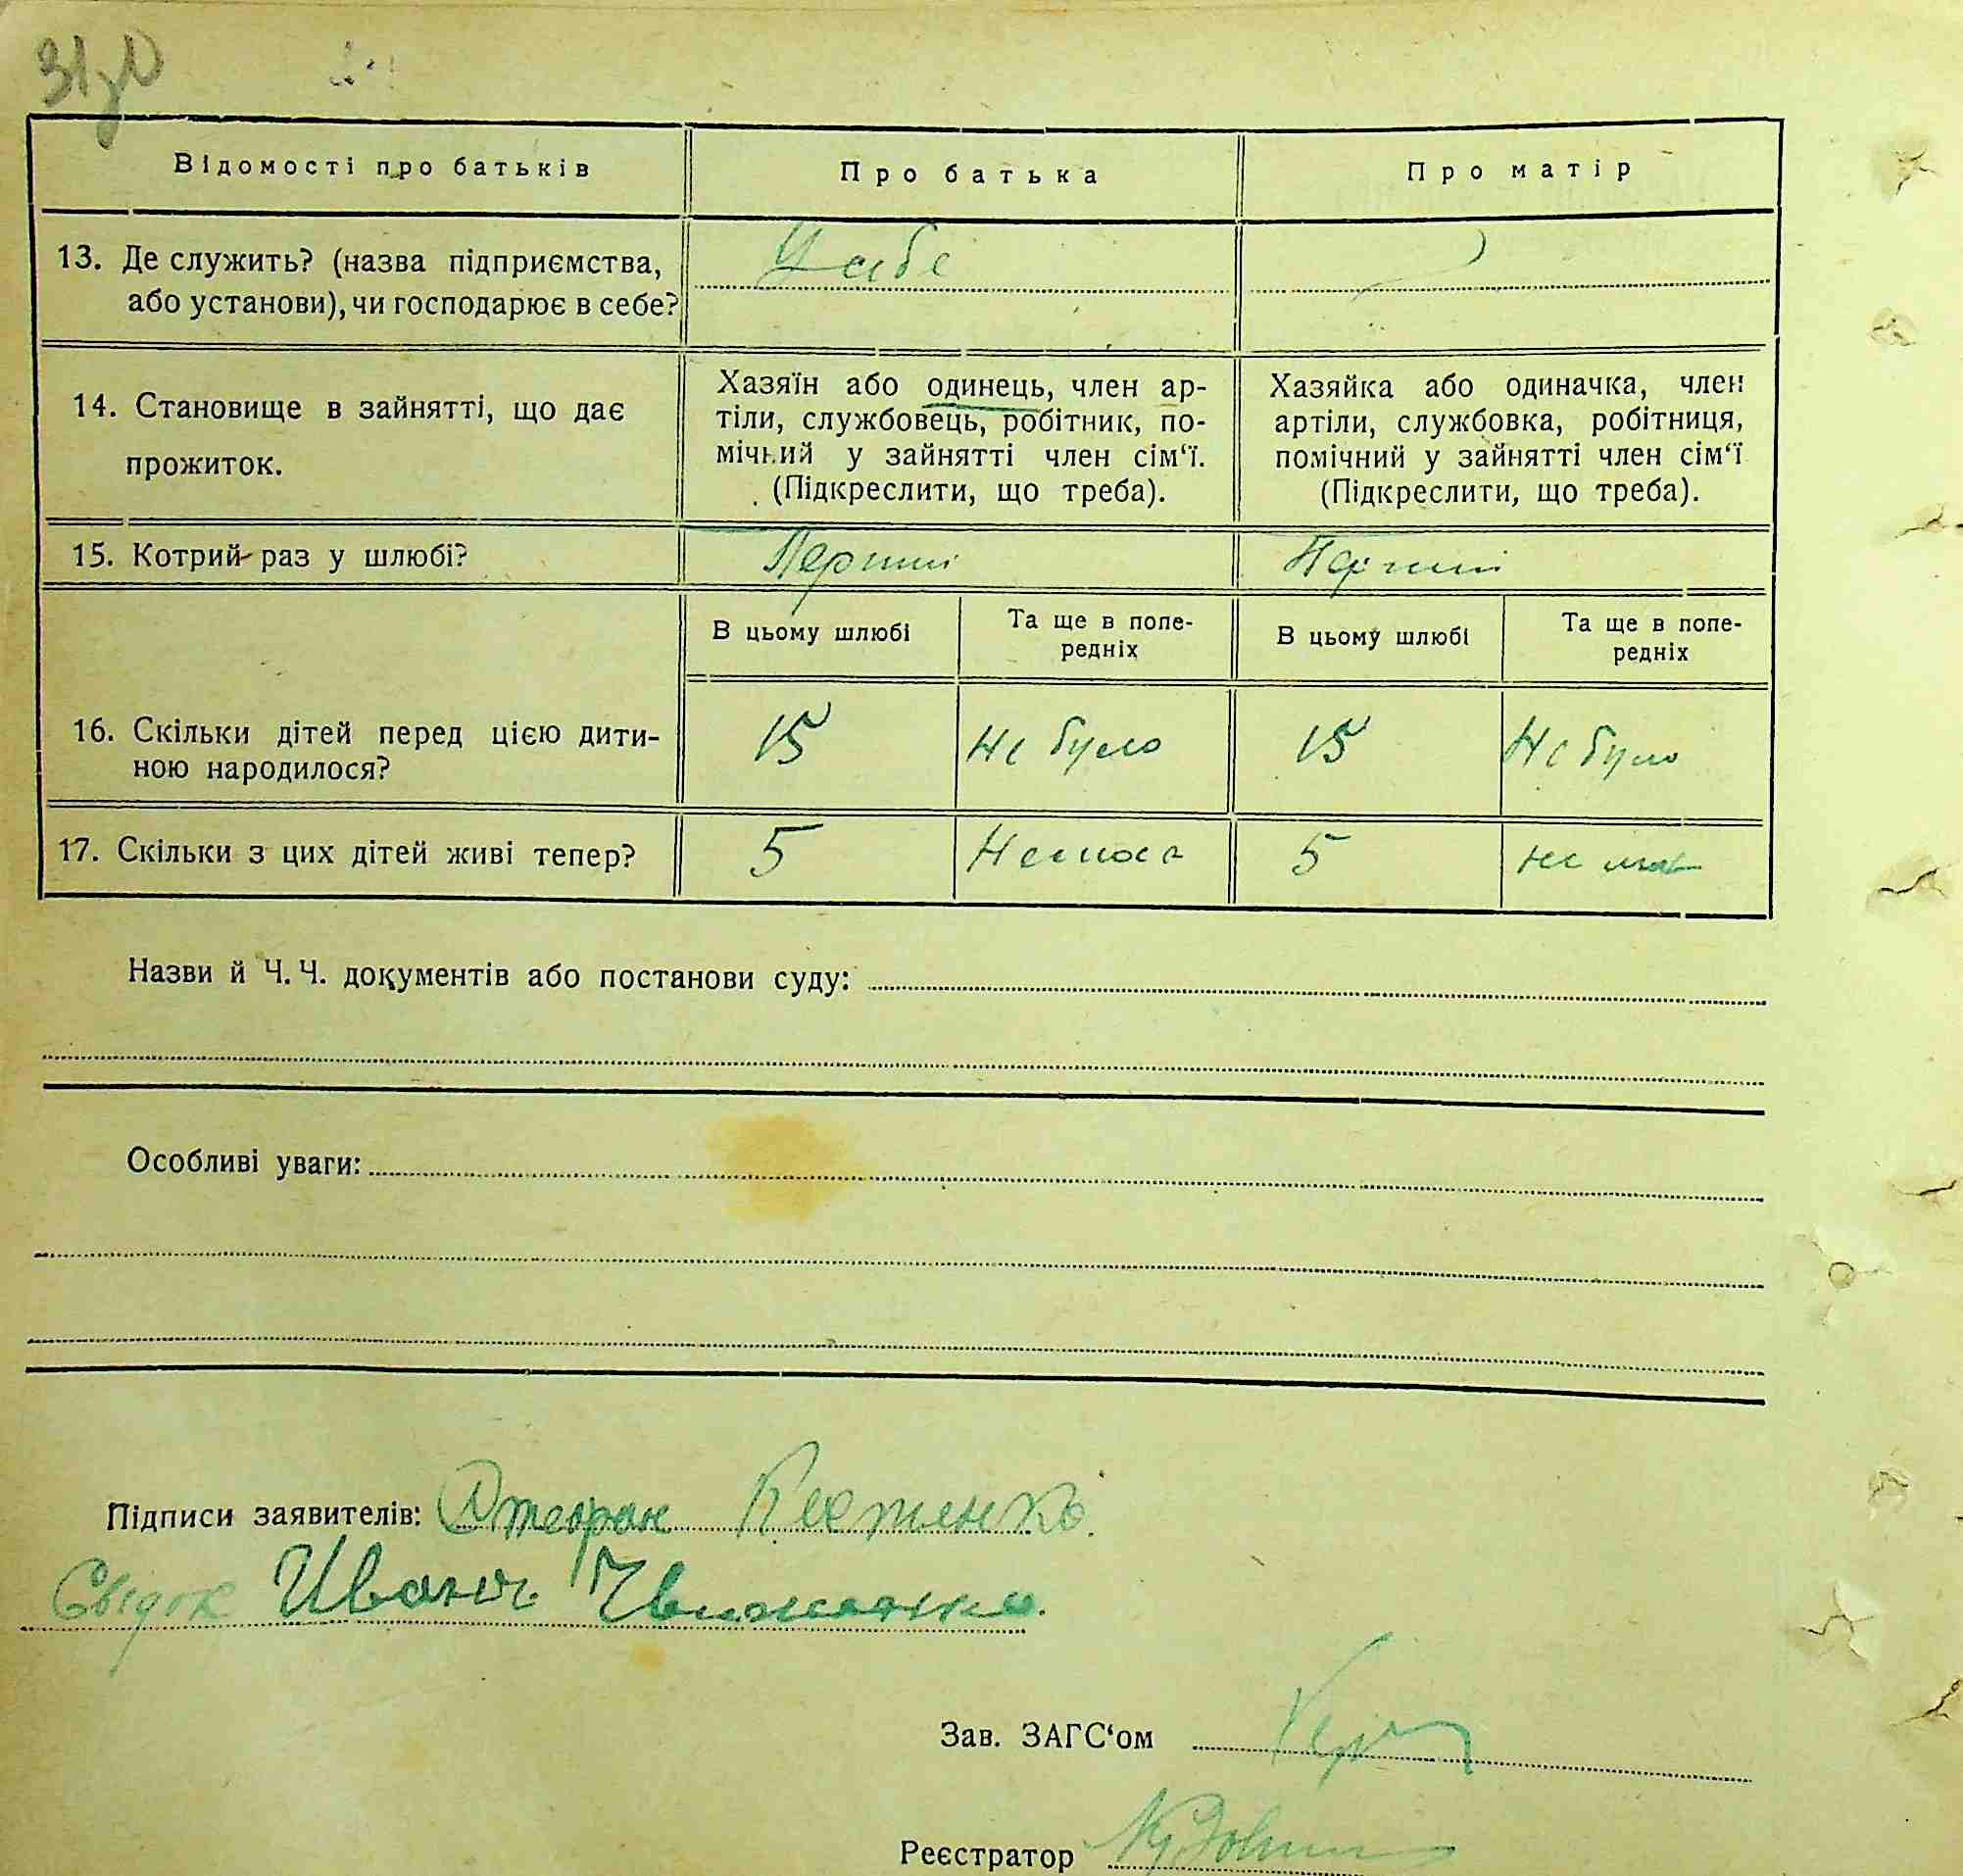 31
Відомості про батьків
Про батька
Про матір
13. Де служить? (назва підприємства,
або установи), чи господарює в себе?
У себе
14. Становище в зайнятті, що дає
прожиток.
Хазяїн або одинець, член ар-
тіли, службовець, робітник, по-
мічний у зайнятті член сім‘ї.
(Підкреслити, що треба).
Хазяйка або одиначка, член
артіли, службовка, робітниця,
помічний у зайнятті член сім‘ї
(Підкреслити, що треба).
15. Котрий раз у шлюбі?
Перший
Перший
В цьому шлюбі
Та ще в попе-
редніх
В цьому шлюбі
Та ще в попе-
редніх
16. Скільки дітей перед цією дити-
ною народилося?
15
Не було
15
Не було
17. Скільки з цих дітей живі тепер?
5
Немає
5
не має
Назви й Ч. Ч. документів або постанови суду:
Особливі уваги:
Підписи заявителів:
Свідок Иванъ
Зав. ЗАГС‘ом
Реєстратор